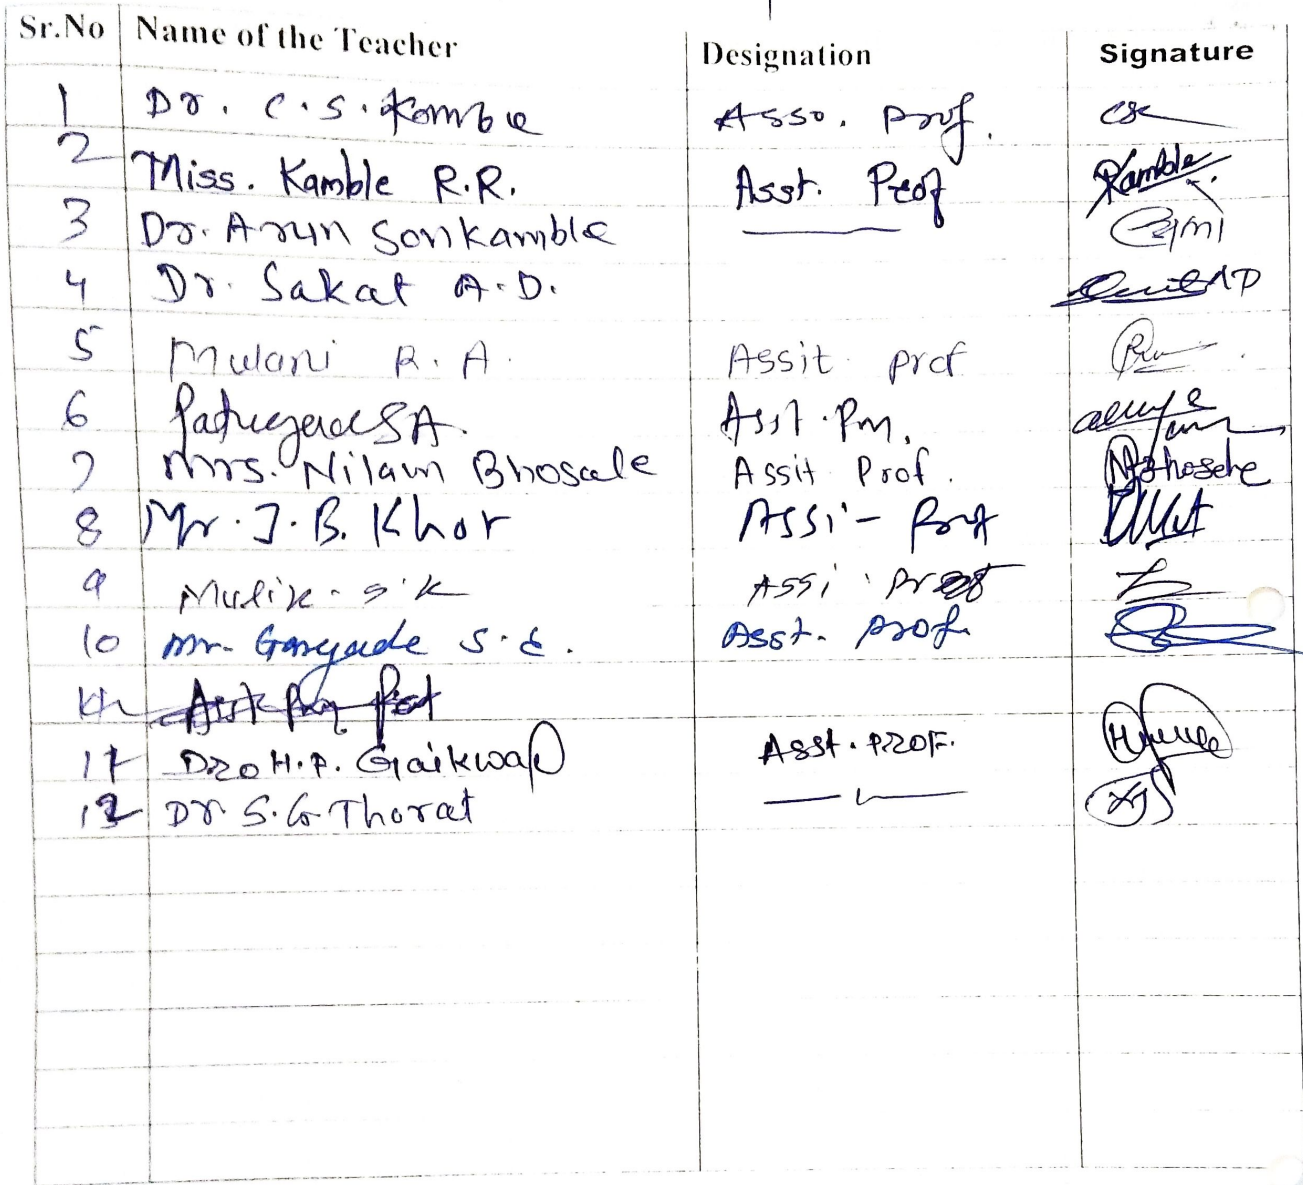 Sr.No Name of the Teacher Designation Signature
1 Dr. C.S. Kamble Asso. Prof. CSK
2 Miss. Kamble R.R. Asst. Prof Kamble
3 Dr. Arun Sonkamble
4 Dr. Sakat A.D.
5 Mulani R.A. Assit prof
6 S A. Asst.
7 Mrs. Nilam Bhosale Assit Prof. NBhosale
8 Mr. J.B. Khot Assi- Prof
9 Mulik S.K Assi. Prof
10 Mr. Gargade S.E. Asst. Prof.
11 Dr. H.P. Gaikwad Asst. PROF.
12 Dr. S.G. Thorat